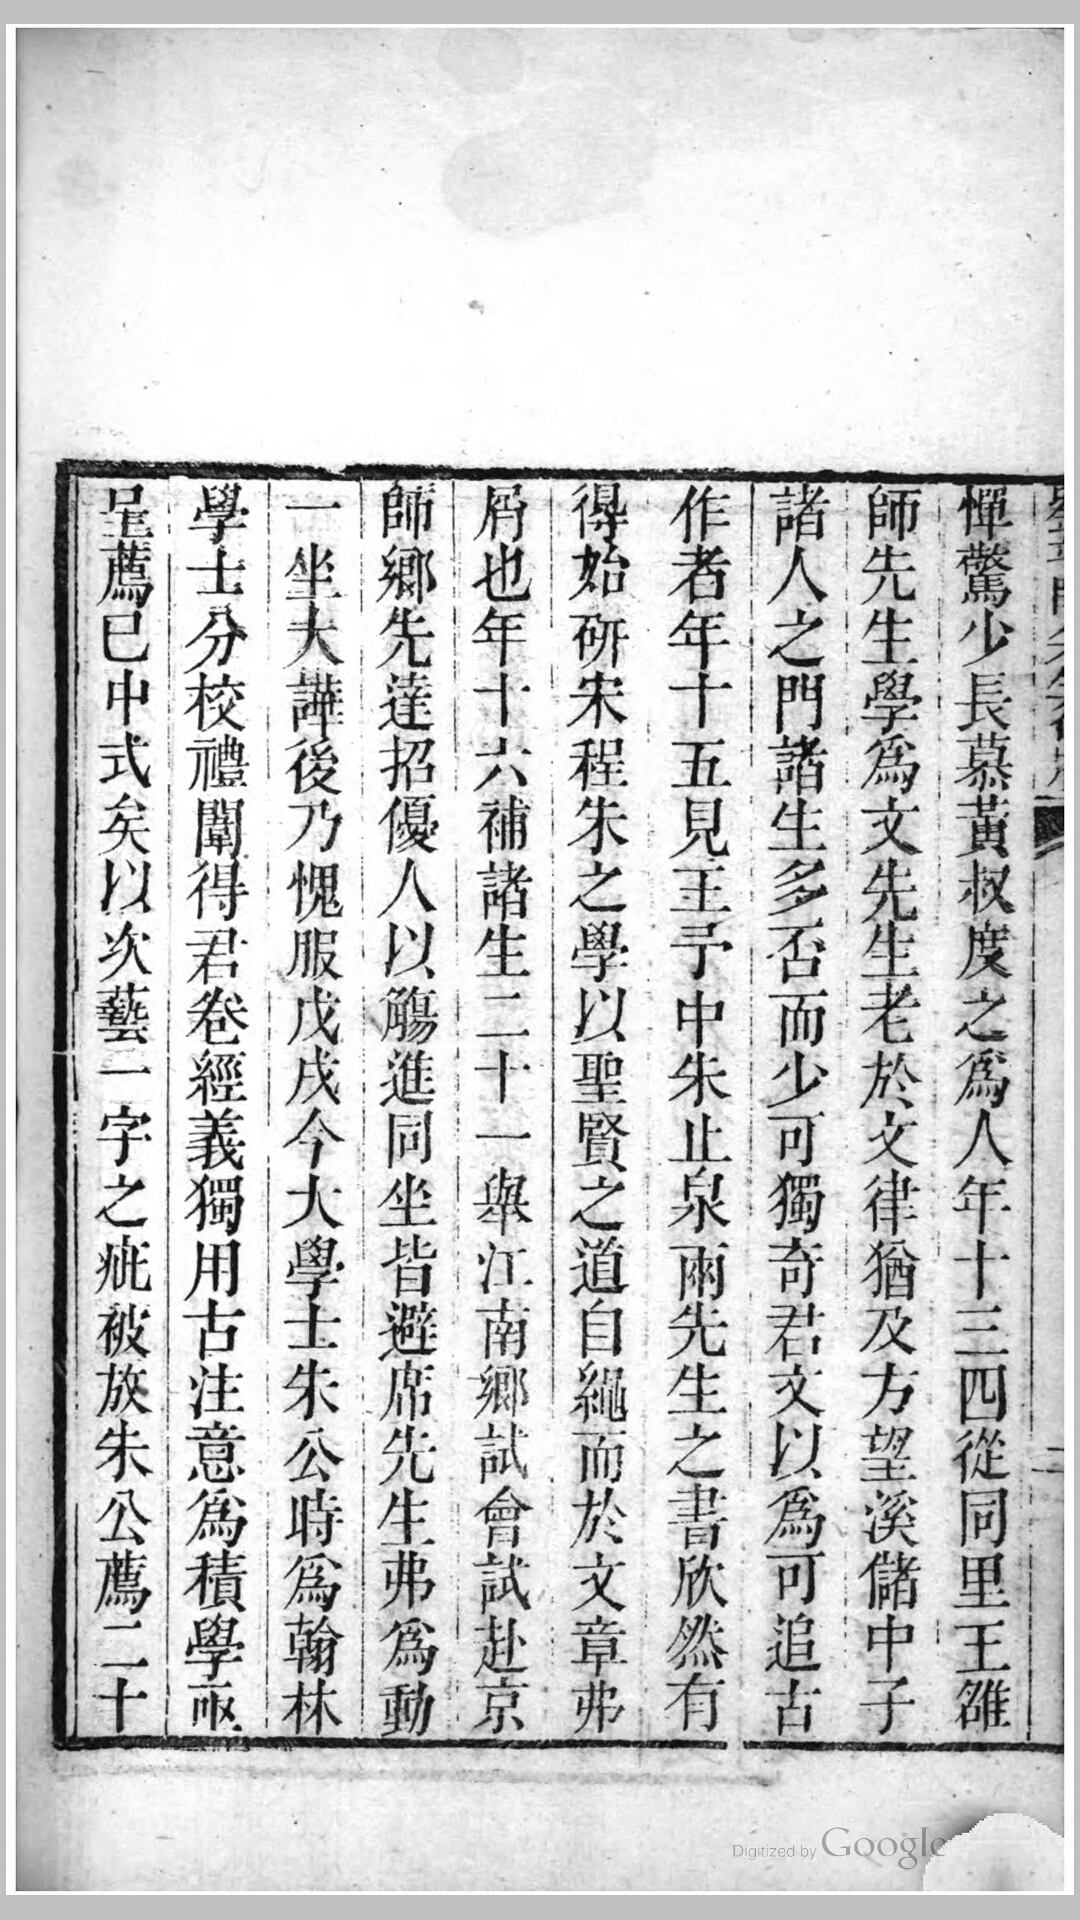 憚驚少長慕黃叔度之爲人年十三四從同里王雒
師先生學爲文先生老於文律猶及方望溪儲中子
諸人之門諸生多否而少可獨奇君文以爲可追古
作者年十五見王予中朱止泉兩先生之書欣然有
得始研宋程朱之學以聖賢之道自繩而於文章弗
屑也年十六補諸生二十一舉江南鄉試會試赴京
師鄉先達招優人以觴進同坐皆避席先生弗爲動
一坐大譁後乃愧服戊戌今大學士朱公時爲翰林
學士分校禮闈得君卷經義獨用古注意爲積學亟
呈薦已中式矣以次藝一字之疵被放朱公薦二十
Digitized by Google